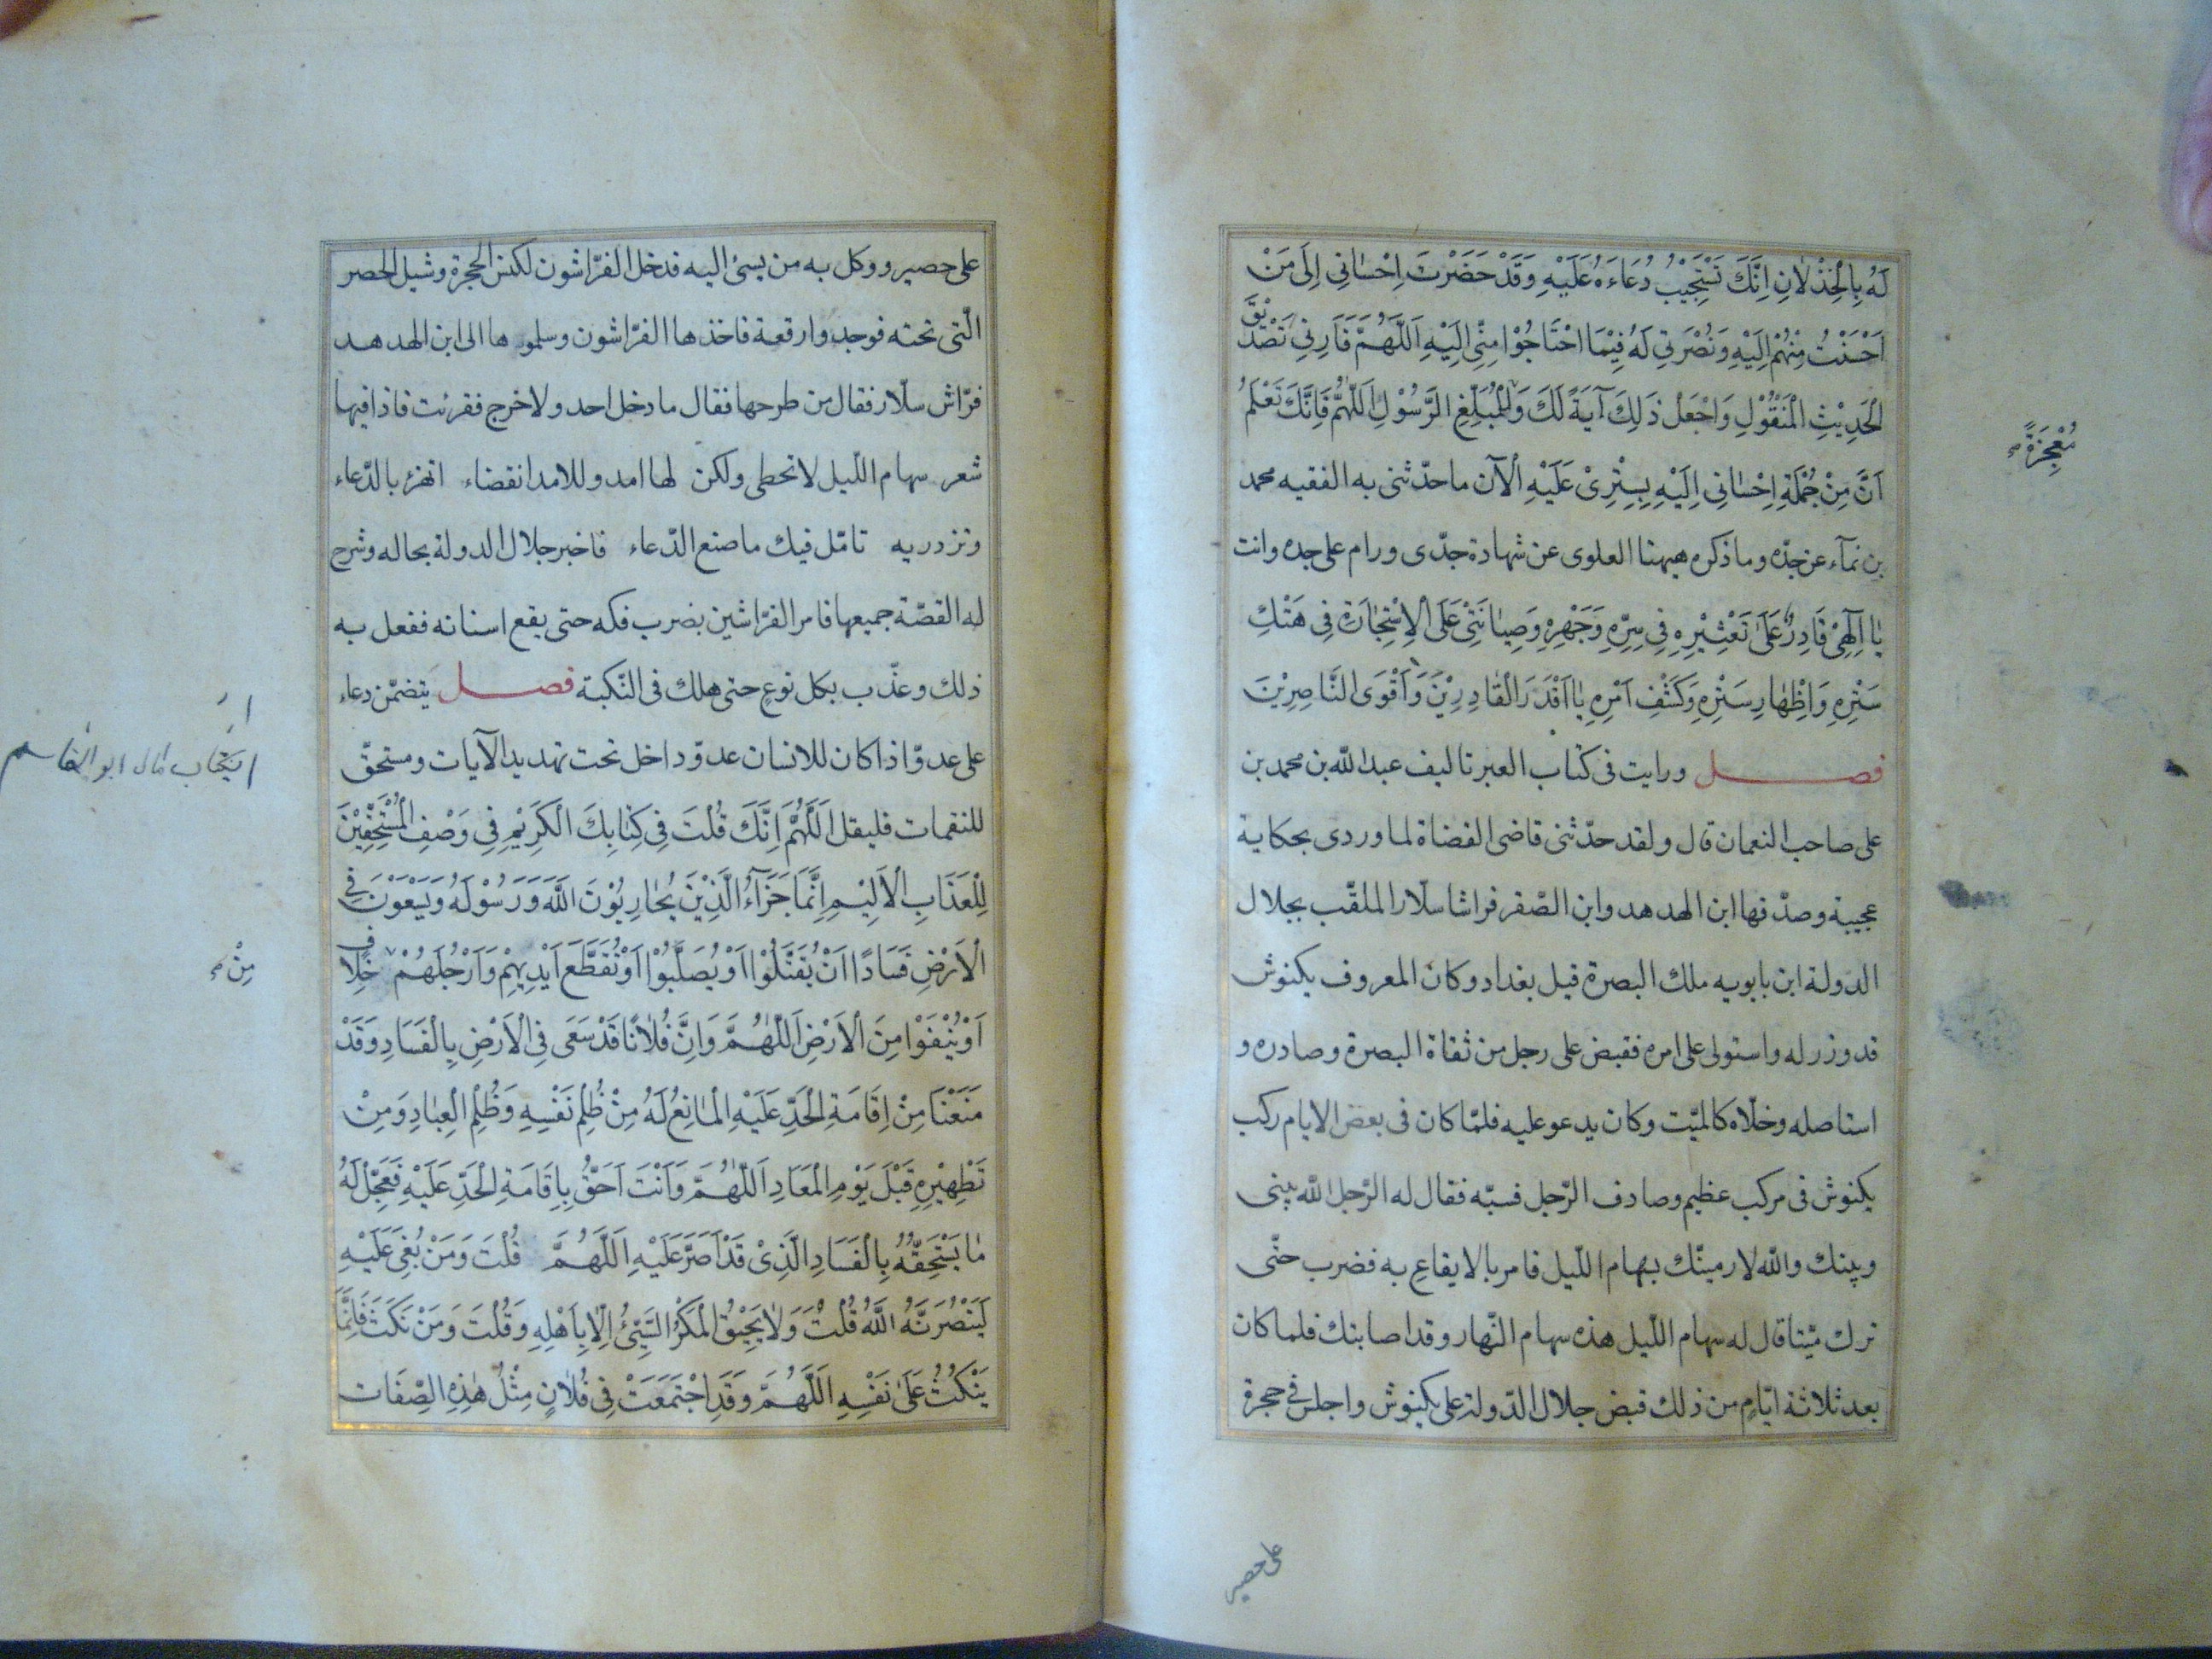 لَهُ بِالْخِذْلَانِ اِنَّكَ تَسْتَجِيْبُ دُعَاءَهُ عَلَيْهِ وَقَدْ حَضَرْتَ اِحْسَانِي اِلَى مَنْ
اَحْسَنْتُ مِنْهُمْ اِلَيْهِ وَنُصْرَتِي لَهُ فِيْمَا احْتَاجُوْا مِنِّي اِلَيْهِ اَللَّهُمَّ فَاَرِنِي تَصْدِيْقَ
الْحَدِيْثِ الْمَنْقُوْلِ وَاجْعَلْ ذَلِكَ آيَةً لَكَ وَلِلْمُبَلِّغِ الرَّسُوْلِ اَللّٰهُمَّ فَاِنَّكَ تَعْلَمُ
مُعْجِزَةً
اَنَّ مِنْ جُمْلَةِ اِحْسَانِي اِلَيْهِ بِسِتْرِيْ عَلَيْهِ الْآنَ ما حدّثنى به الفقيه محمد
بن نمآء عن جدّه وما ذكره هيهنا العلوى عن شهادة جدّى ورام على جده وانت
يَا اِلَهِيْ قَادِرٌ عَلَى تَعْثِيْرِهِ فِي سِرِّهِ وَجَهْرِهِ وَصِيَانَتِيْ عَلَى الْاِسْتِجَازَةِ فِي هَتْكِ
سَتْرِهِ وَاِظْهَارِ سَتْرِهِ وَكَشْفِ اَمْرِهِ يَا اَقْدَرَ الْقَادِرِيْنَ وَاَقْوَى النَّاصِرِيْنَ
فصل ورايت فى كتاب العبر تاليف عبد الله بن محمد بن
على صاحب النعمان قال ولقد حدّثنى قاضى القضاة لما وردى بحكاية
عجيبة وصدّقها ابن الهدهد وابن الصّقر فراشا سلّار الملقّب بجلال
الدولة ابن بابويه ملك البصرة قبل بغداد وكان المعروف بكنوش
قد وزر له واستولى على امره فقبض على رجل من ثقاة البصرة وصادره و
استاصله وخلّاه كالميّت وكان يدعو عليه فلمّا كان فى بعض الايام ركب
بكنوش فى مركب عظيم وصادف الرّجل فسبّه فقال له الرّجل الله بينى
وبينك والله لارمينّك بسهام اللّيل فامر بالايقاع به فضرب حتّى
ترك ميّتا قال له سهام اللّيل هذه سهام النّهار وقد اصابتك فلما كان
بعد ثلاثة ايّام من ذلك قبض جلال الدّولة على بكنوش واجلس فى حجرة
على حصير
على حصير ووكل به من يسئ اليه فدخل الفرّاشون لكنس الحجرة وشيل الحصر
الّتى تحته فوجدوا رقعة فاخذها الفرّاشون وسلموها الى ابن الهدهد
فرّاش سلّار فقال من طرحها فقال ما دخل احد ولا خرج فقرئت فاذا فيها
شعر سهام اللّيل لا تخطى ولكن لها امد وللامد انقضاء اتهزئ بالدّعاء
وتزدريه تامّل فيك ما صنع الدّعاء فاخبر جلال الدولة بحاله وشرح
له القصّة جميعها فامر الفرّاشين بضرب فكه حتى يقع اسنانه ففعل به
ذلك وعذّب بكل نوع حتى هلك فى النّكبة فصل يتضمّن دعاء
على عدوّ اذا كان للانسان عدوّ داخل تحت تهديد الآيات ومستحقّ
للنقمات فليقل اَللَّهُمَّ اِنَّكَ قُلْتَ فِي كِتَابِكَ الْكَرِيْمِ فِي وَصْفِ الْمُسْتَحِقِّيْنَ
لِلْعَذَابِ الْاَلِيْمِ اِنَّمَا جَزَآءُ الَّذِيْنَ يُحَارِبُوْنَ اللَّهَ وَرَسُوْلَهُ وَيَسْعَوْنَ فِي
الْاَرْضِ فَسَادًا اَنْ يُقَتَّلُوْا اَوْ يُصَلَّبُوْا اَوْ تُقَطَّعَ اَيْدِيْهِمْ وَاَرْجُلَهُمْ خِلَافٍ
مِنْ
اَوْ يُنْفَوْا مِنَ الْاَرْضِ اَللّٰهُمَّ وَاِنَّ فُلَانًا قَدْ سَعَى فِي الْاَرْضِ بِالْفَسَادِ وَقَدْ
مَنَعْنَا مِنْ اِقَامَةِ الْحَدِّ عَلَيْهِ الْمَانِعُ لَهُ مِنْ ظُلْمِ نَفْسِهِ وَظُلْمِ الْعِبَادِ وَمِنْ
تَطْهِيْرِهِ قَبْلَ يَوْمِ الْمَعَادِ اَللّٰهُمَّ وَاَنْتَ اَحَقُّ بِاِقَامَةِ الْحَدِّ عَلَيْهِ فَعَجِّلْ لَهُ
مَا يَسْتَحِقُّهُ بِالْفَسَادِ الَّذِيْ قَدْ اَصَرَّ عَلَيْهِ اَللَّهُمَّ قُلْتَ وَمَنْ بُغِيَ عَلَيْهِ
لَيَنْصُرَنَّهُ اللَّهُ قُلْتَ وَلَا يَحِيْقُ الْمَكْرُ السَّيِّئُ اِلَّا بِاَهْلِهِ وَقُلْتَ وَمَنْ نَكَثَ فَاِنَّمَا
يَنْكُثُ عَلَى نَفْسِهِ اَللَّهُمَّ وَقَدِ اجْتَمَعَتْ فِي فُلَانٍ مِثْلُ هٰذِهِ الصِّفَاتِ